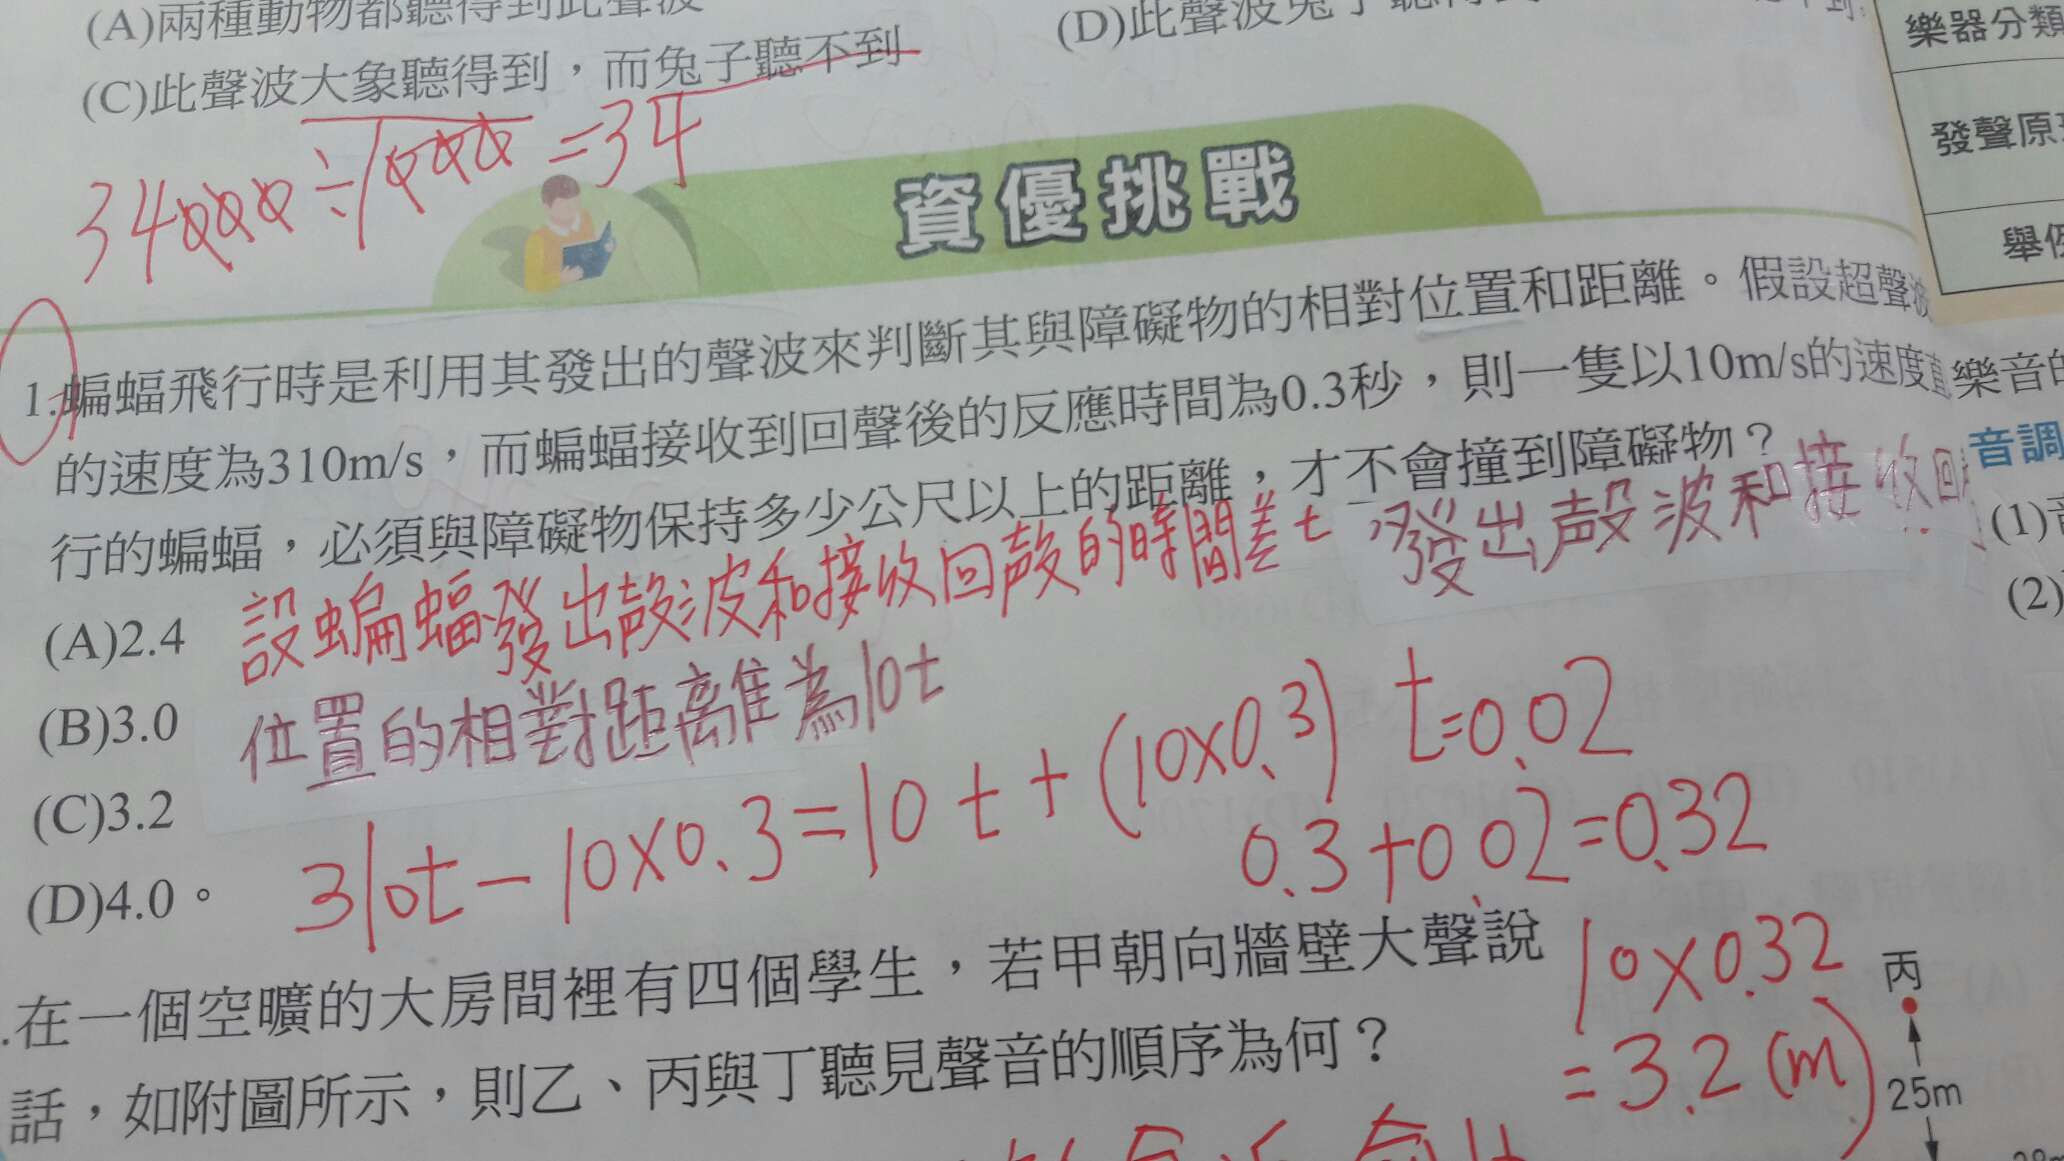 (A)兩種動物都聽得到此聲波
(D)此聲波兔子聽得
(C)此聲波大象聽得到，而兔子聽不到
34000÷1000=34
資優挑戰
1.蝙蝠飛行時是利用其發出的聲波來判斷其與障礙物的相對位置和距離。假設超聲波
的速度為310m/s，而蝙蝠接收到回聲後的反應時間為0.3秒，則一隻以10m/s的速度直
行的蝙蝠，必須與障礙物保持多少公尺以上的距離，才不會撞到障礙物？
設蝙蝠發出聲波和接收回聲的時間差t 發出聲波和接收回
(A)2.4
位置的相對距離為10t
(B)3.0
310t-10×0.3=10t+(10×0.3) t=0.02
(C)3.2
0.3+0.02=0.32
(D)4.0。
10×0.32
=3.2(m)
.在一個空曠的大房間裡有四個學生，若甲朝向牆壁大聲說
話，如附圖所示，則乙、丙與丁聽見聲音的順序為何？
丙
25m
樂器分類
發聲原
舉
樂音的
音調
(1)
(2)